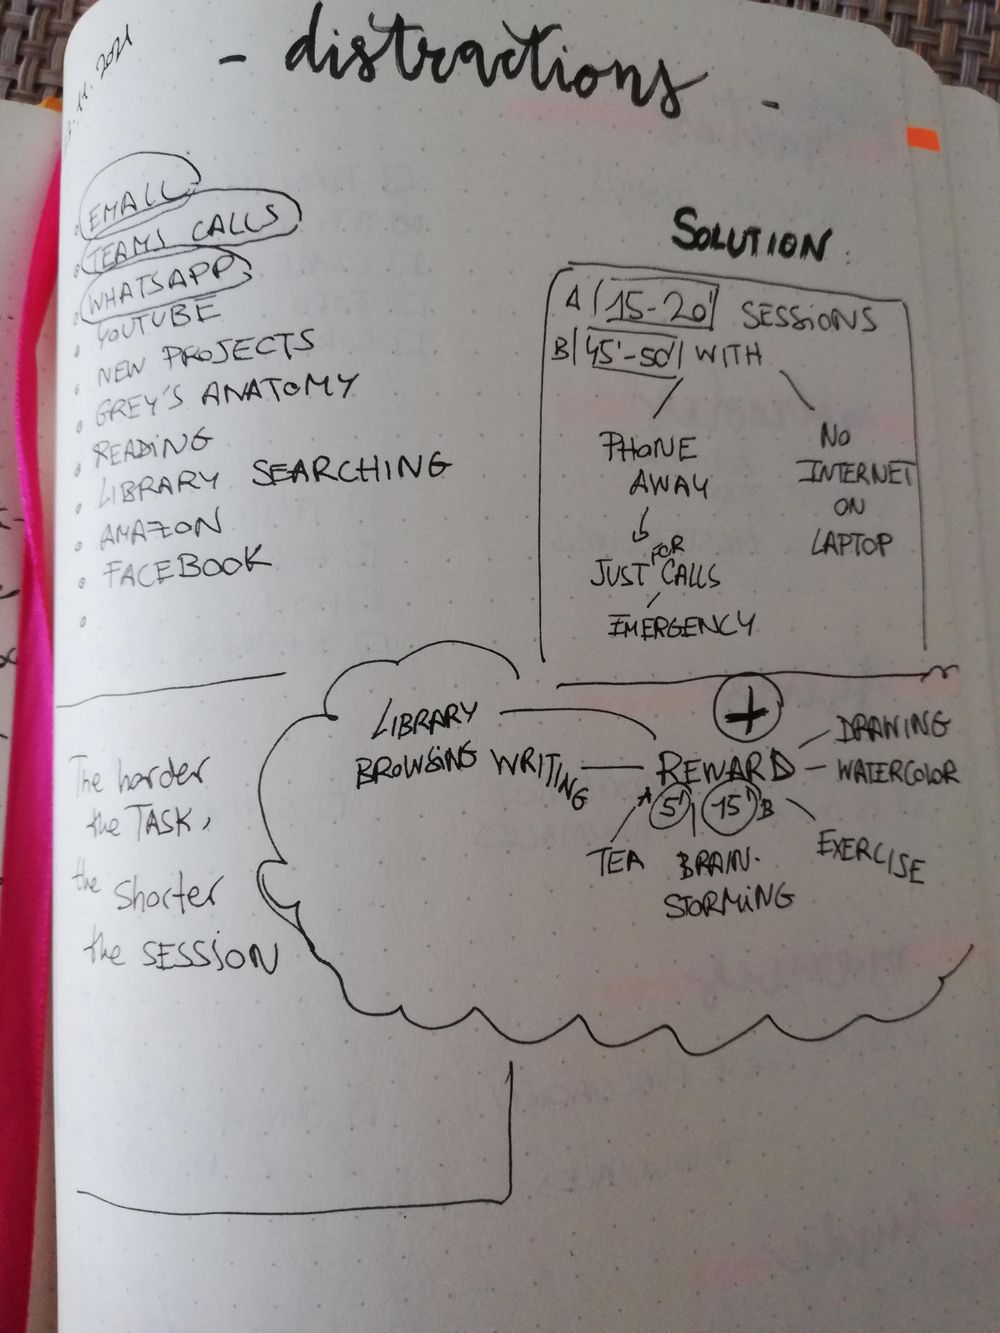 11.2021
- distractions -
EMAIL
TEAMS CALLS
WHATSAPP
YOUTUBE
NEW PROJECTS
GREY'S ANATOMY
READING
LIBRARY SEARCHING
AMAZON
FACEBOOK
SOLUTION:
A | 15-20' | SESSIONS
B | 45'-50' | WITH
PHONE
AWAY
JUST FOR CALLS
EMERGENCY
NO
INTERNET
ON
LAPTOP
The harder
the TASK,
the shorter
the SESSION
+
LIBRARY
BROWSING
WRITING
REWARD
A 5' | 15' B
DRAWING
WATERCOLOR
EXERCISE
TEA
BRAIN-
STORMING